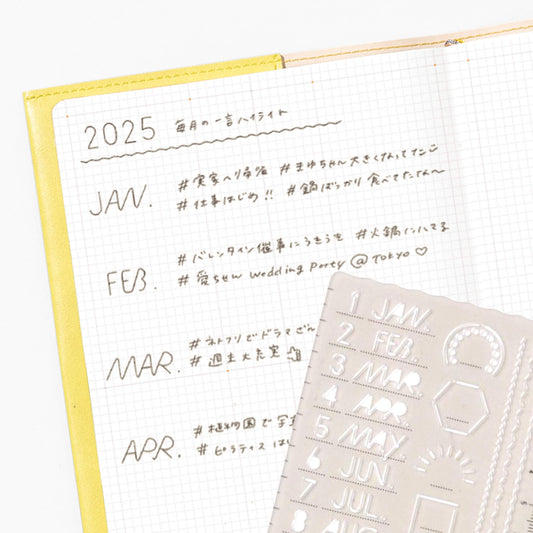 2025 毎月の一言ハイライト
JAN. #実家へ帰省 #まゆちゃん大きくなってた
#仕事はじめ!! #鍋ばっかり食べてたな〜
FEB. #バレンタイン催事にうきうき #火鍋にハマる
#愛ちゃん Wedding Party @ TOKYO ♡
MAR. #ネトフリでドラマざん
#週末大充実
APR. #植物園で写
#ピラティスはじ
1 JAN.
2 FEB.
3 MAR.
4 APR.
5 MAY.
6 JUN.
7 JUL.
8 AUG.